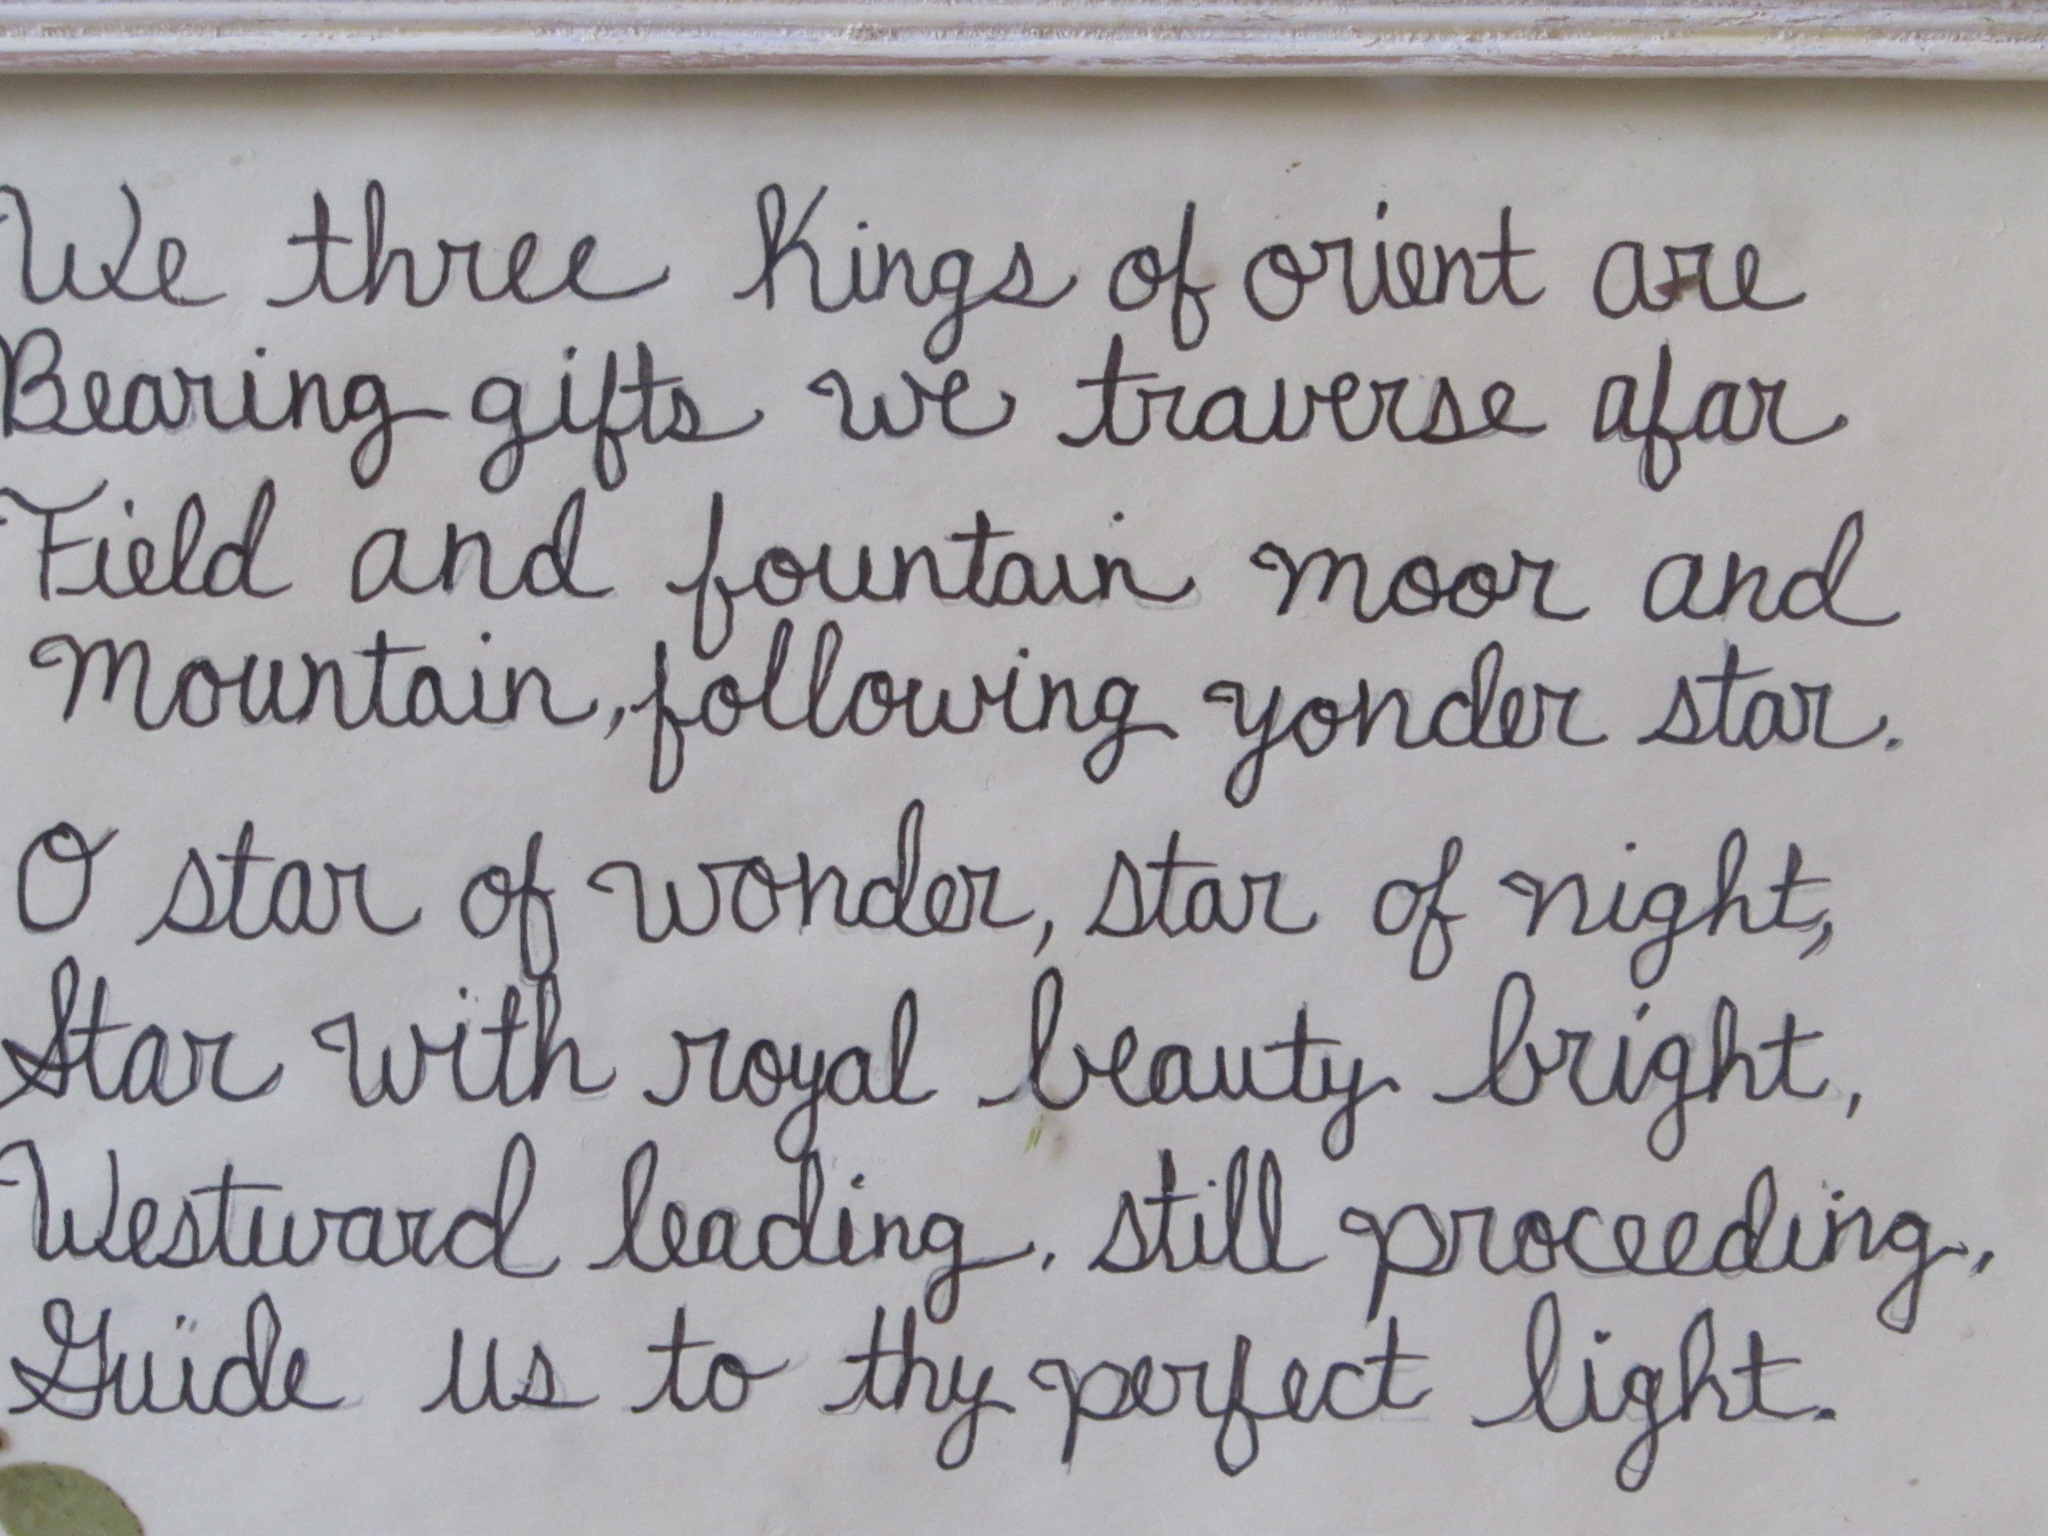 We three Kings of orient are
Bearing gifts we traverse afar
Field and fountain moor and
Mountain, following yonder star.
O star of wonder, star of night,
Star with royal beauty bright,
Westward leading, still proceeding,
Guide us to thy perfect light.